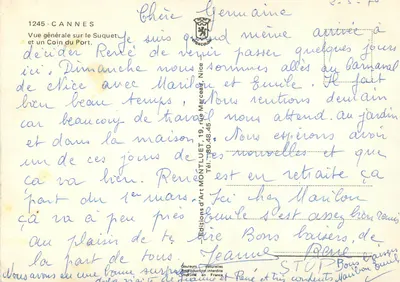 1245 - CANNES
Vue générale sur le Suquet
et un Coin du Port.
Chère Germaine
Je suis quand même arrivée à
décider René de venir passer quelques jours
ici. Dimanche nous sommes allés au Carnaval
de Nice avec Marilou et Emile. Il fait
bien beau temps. Nous rentrons demain
car beaucoup de travail nous attend au jardin
et dans la maison. Nous espérons avoir
un de ces jours de tes nouvelles et que
ça va bien. René est en retraite ça
part du 1er mars. Ici chez Marilou
çà va à peu près Emile s'est assez bien remis
au plaisir de te lire Bons baisers, de
la part de tous. Jeanne René
STOP Bons baisers
Marilou Emile
Nous avons eu une bonne surprise
et René et très contents
Editions d'Art MONTLUET, 19, rue Mercœur, Nice
Tél. 80.48.45